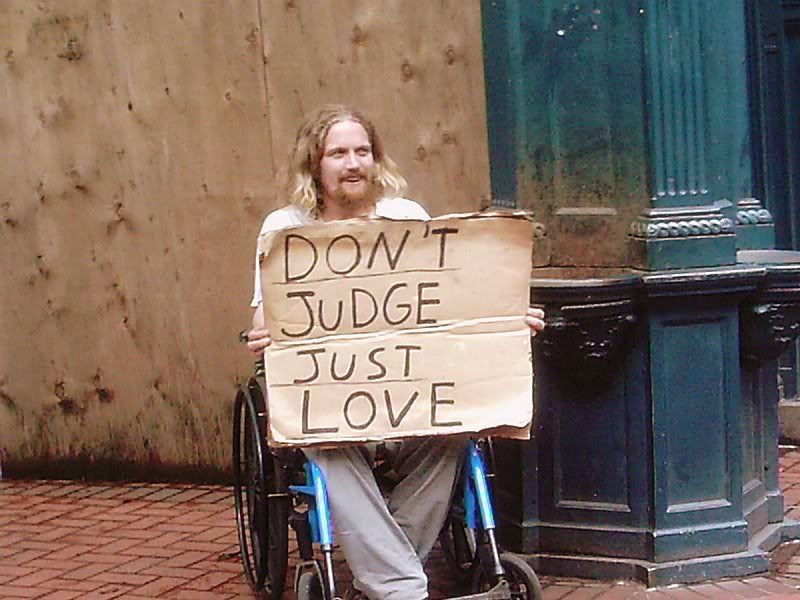 DON'T
JUDGE
JUST
LOVE